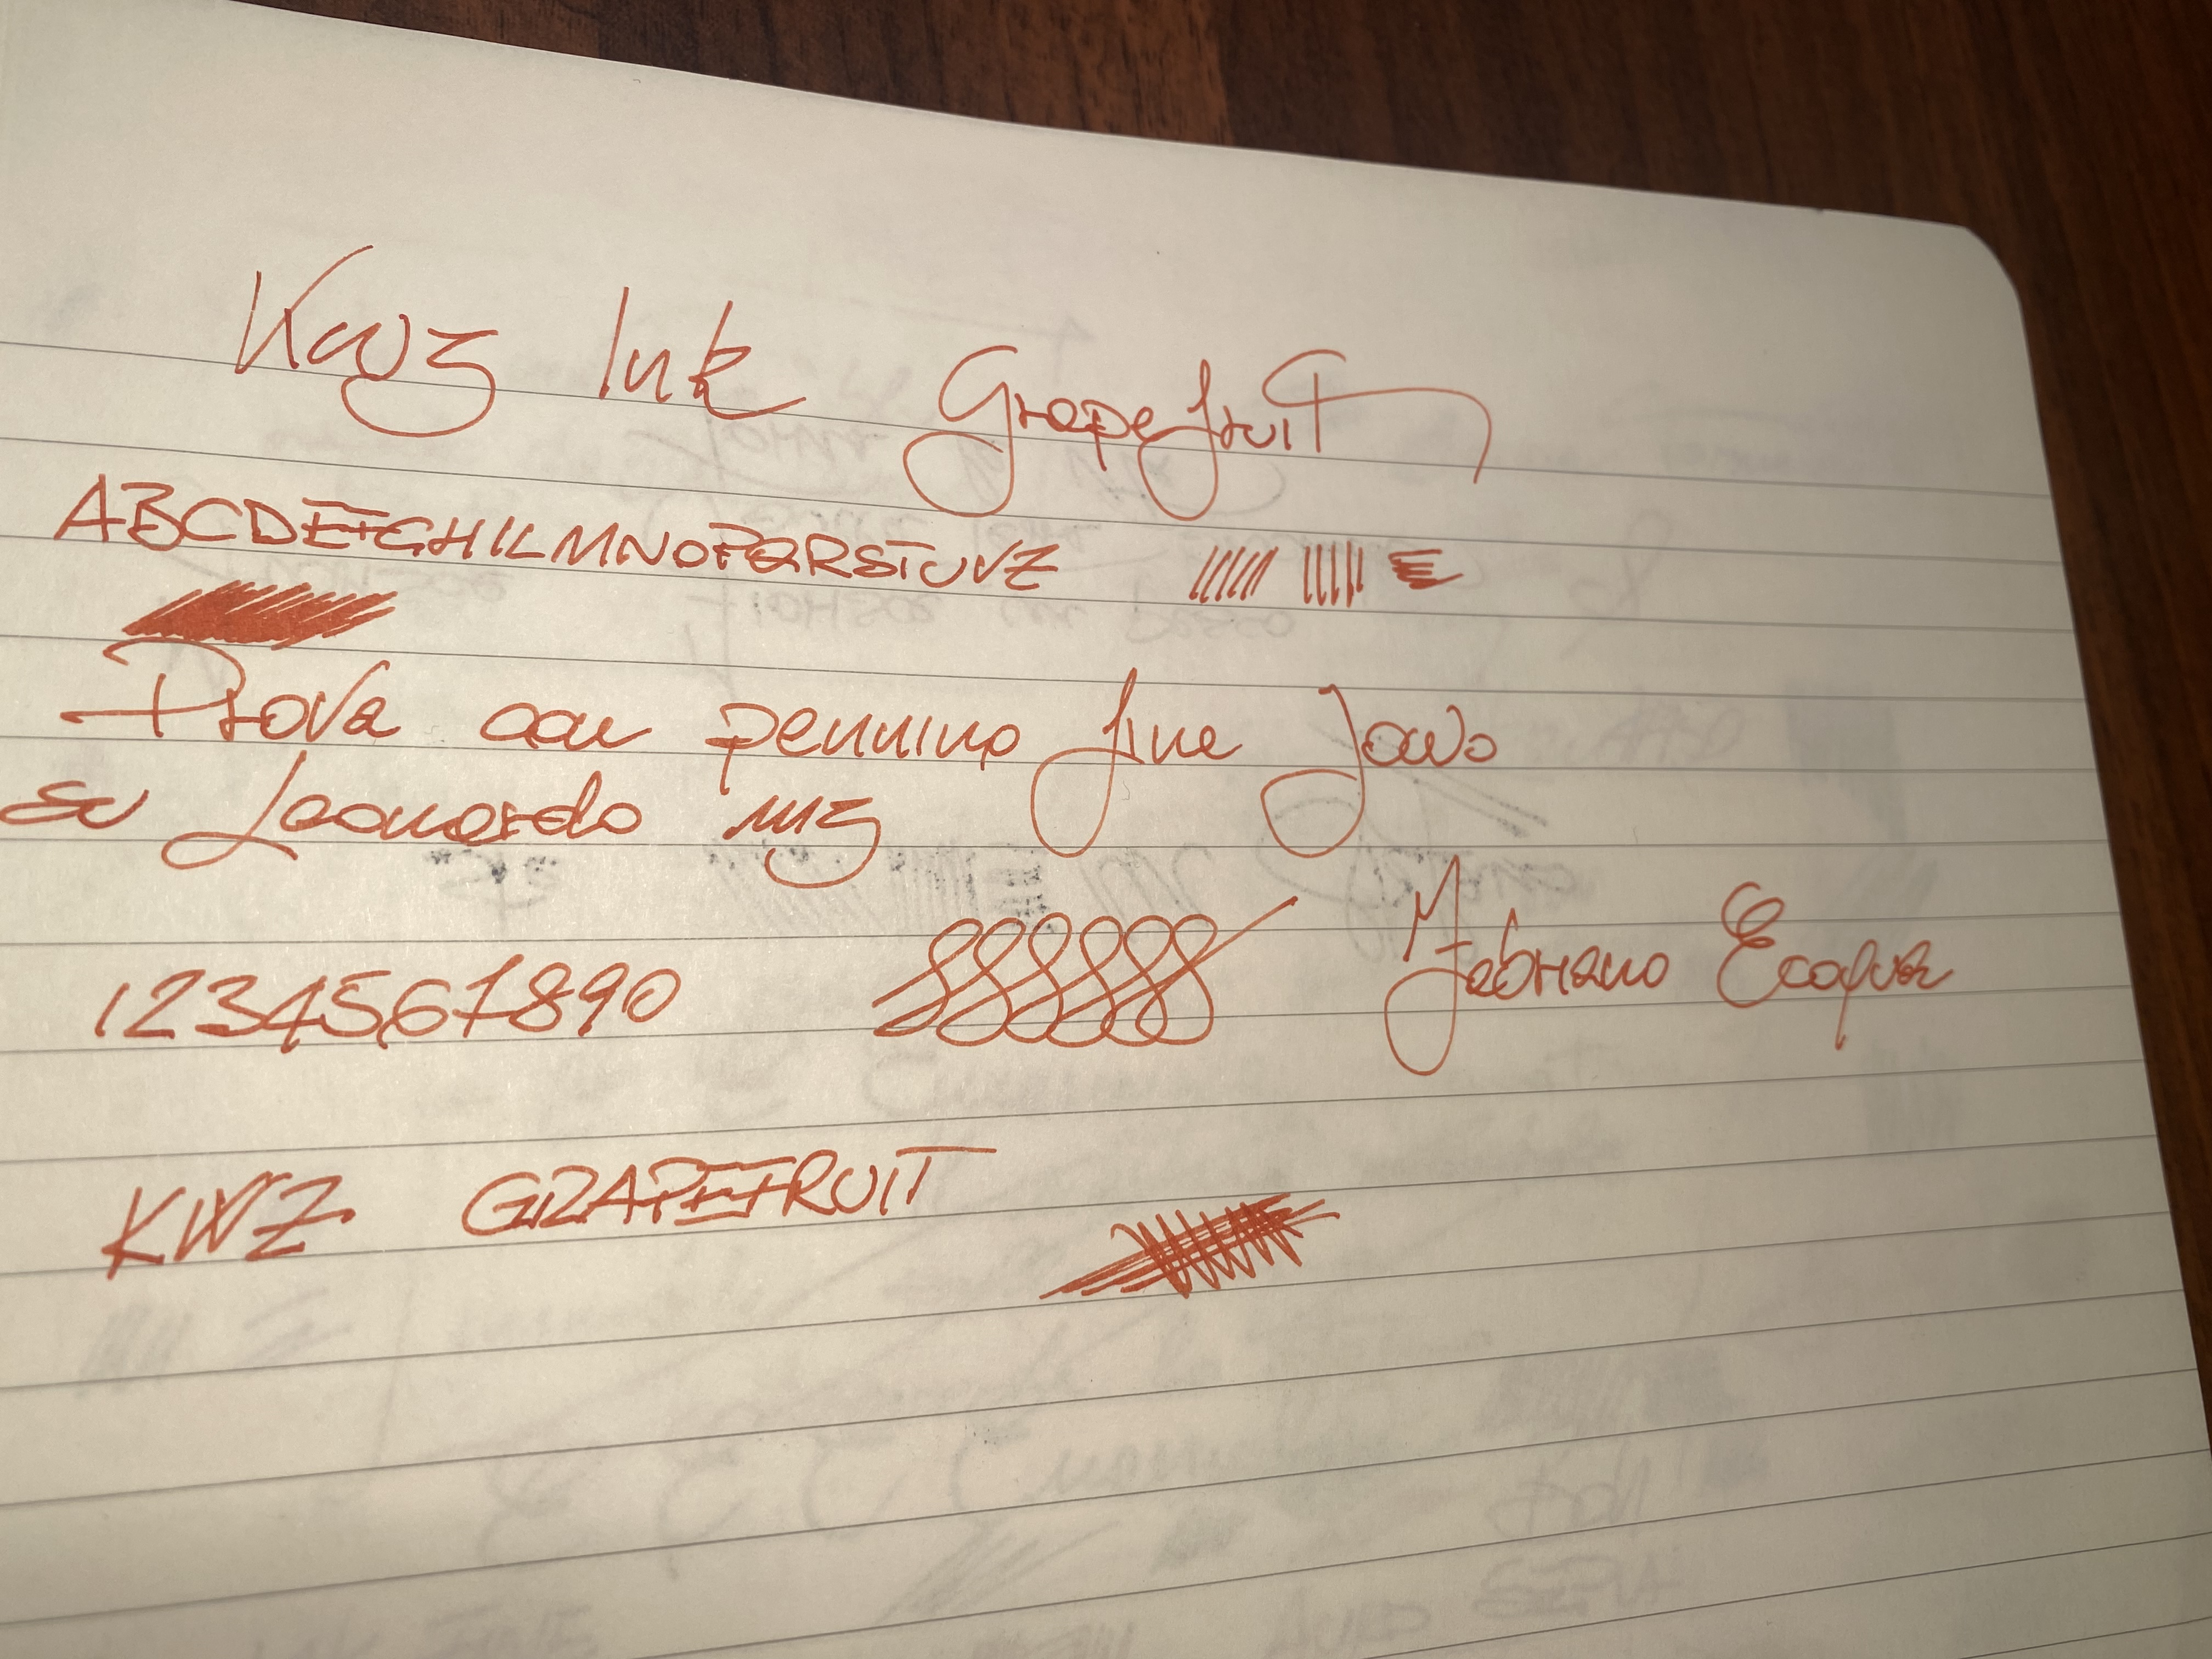 Kwz Ink Grapefruit
ABCDEFGHILMNOPQRSTUVZ
Prova con pennino fine Jowo
su Leonardo mz
1234567890 Fabriano Ecoqua
KWZ GRAPEFRUIT